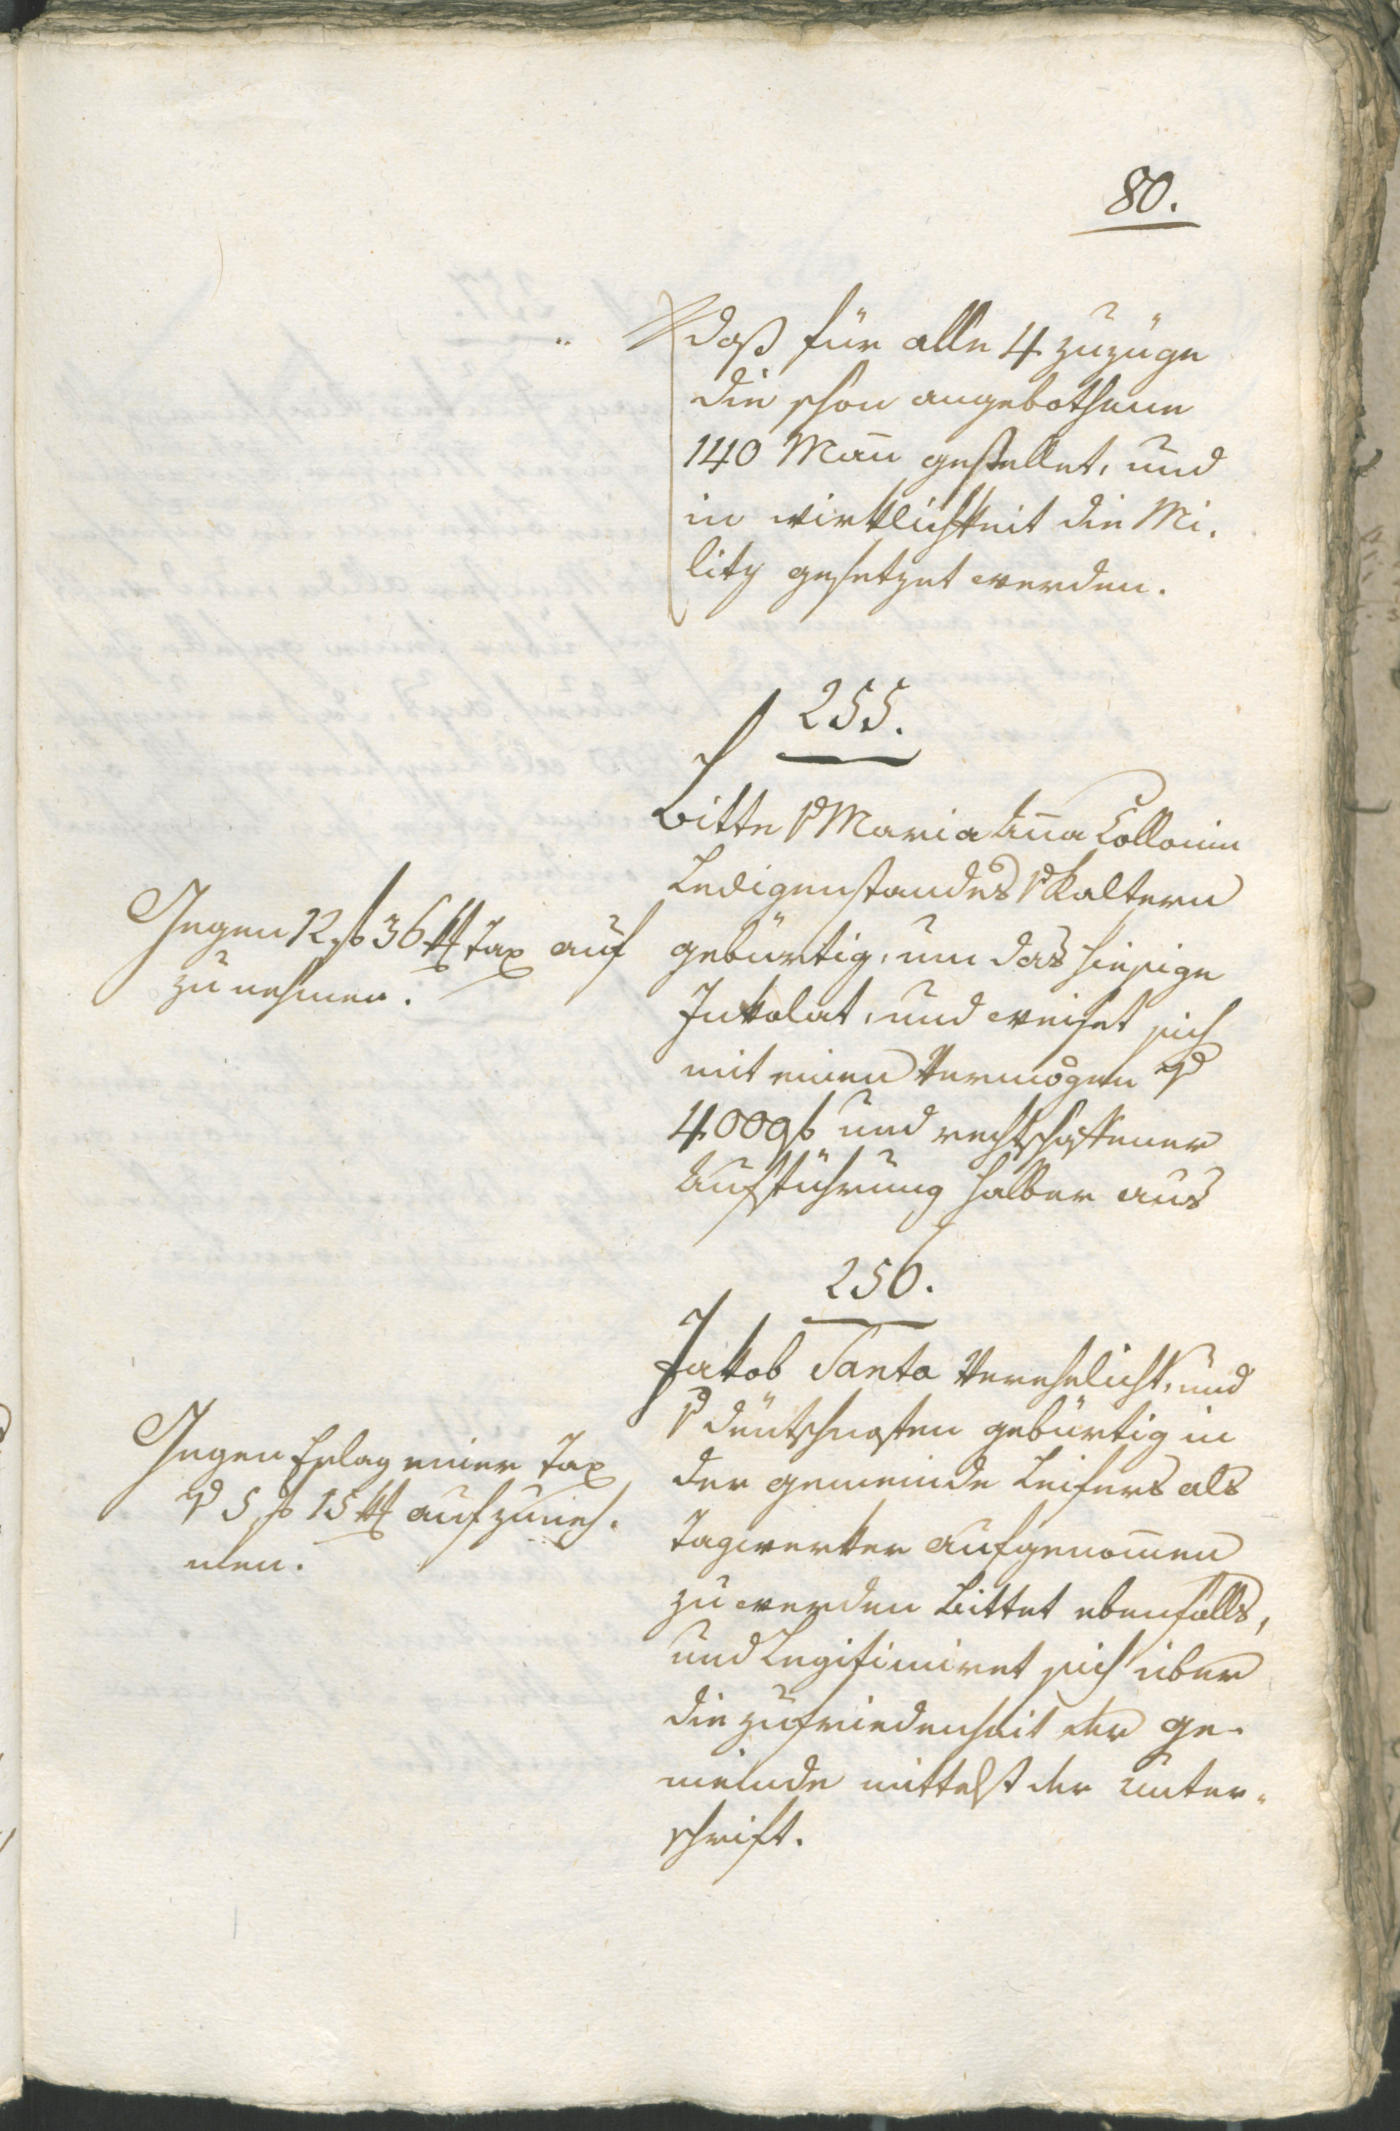 80.
daß für alle 4 zuzüge
die schon angebothene
140 Man̄ gestellet, und
in wirklichkeit die Mi,
litz gesetzet werden.
255.
Bitte v Maria An̄a Collonin
Ledigenstandes v Kaltern
gebürtig, um das hiesige
Inkolat, und weiset sich
mit einen Vermögen v
400 gf und rechtschaffener
Aufführung halber aus
Gegen 12 f 36 xr Tax auf
zu nehmen.
256.
Jakob Santa Verehelicht, und
v deutschnofen gebürtig in
der gemeinde Leifers als
Tagwerker aufgenom̄en
zu werden bittet ebenfalls,
und Legitimiret sich über
die zufriedenheit der ge-
meinde mittelst der Unter-
schrift.
Gegen Erlag einer Tax
v 5 f 15 xr aufzuneh,
men.